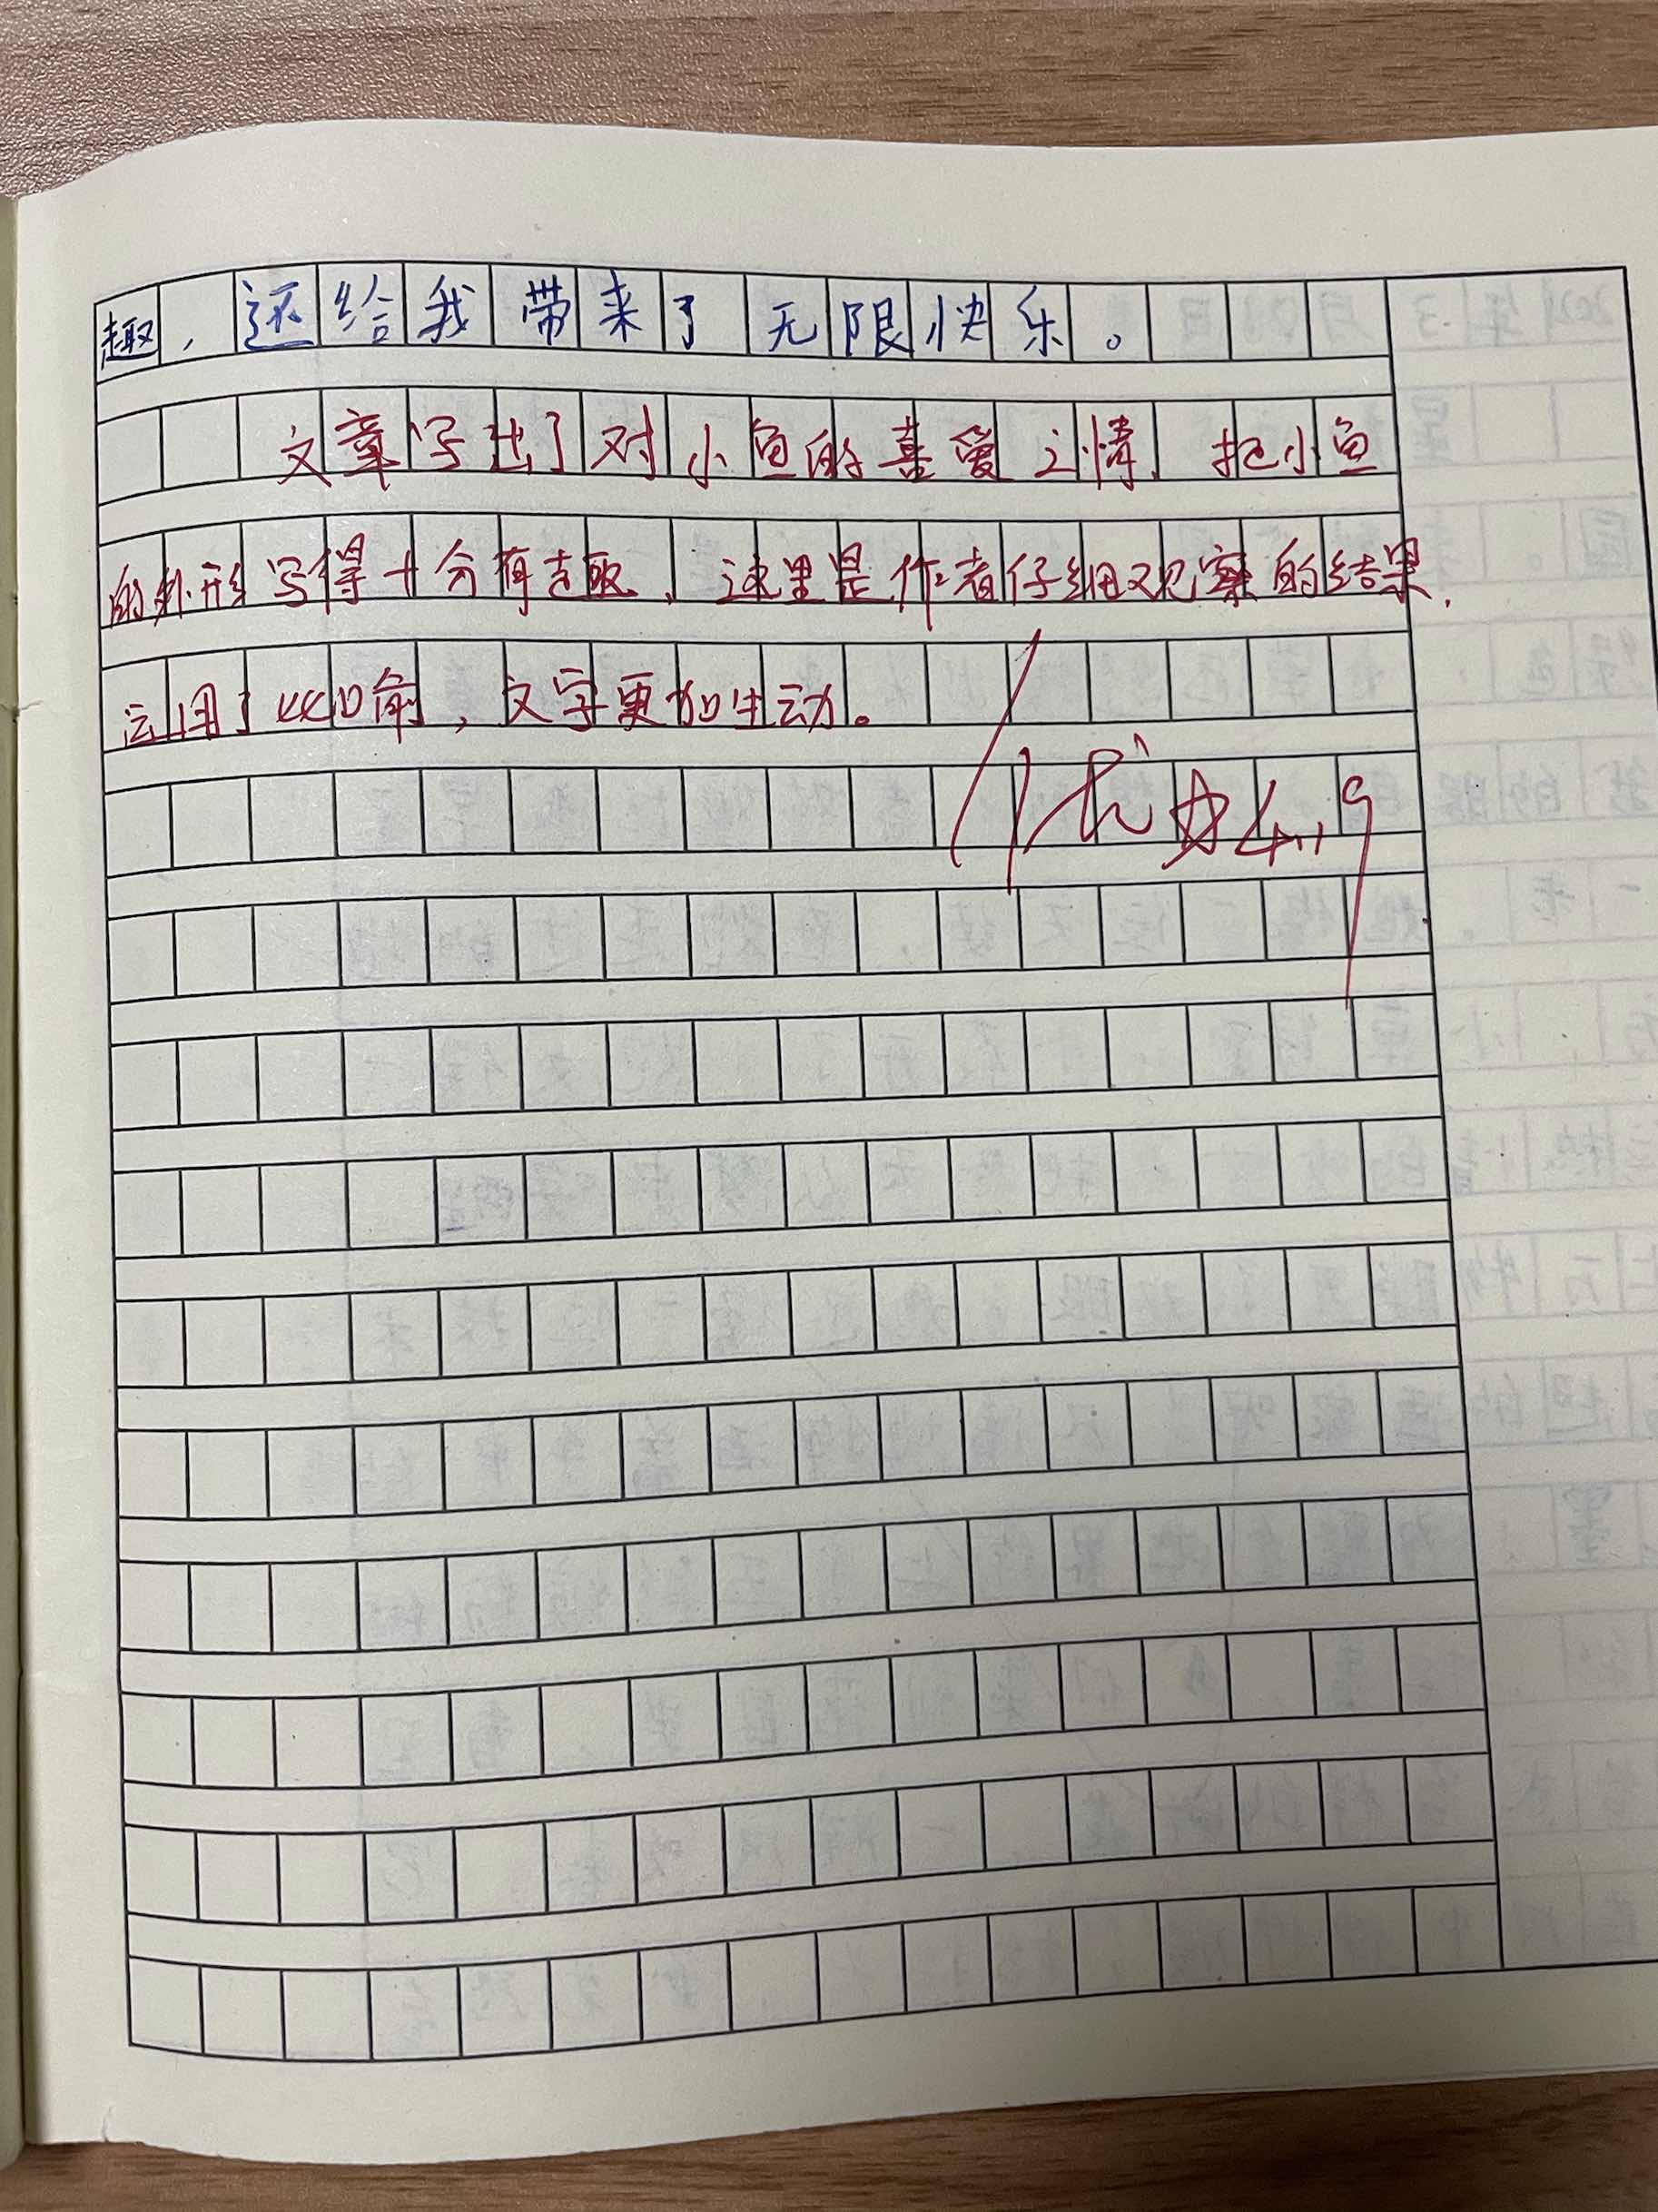 趣，还给我带来了无限快乐。
文章写出了对小鱼的喜爱之情，把小鱼
的外形写得十分有趣，这里是作者仔细观察的结果，
运用了比喻，文字更加生动。
优 4.19